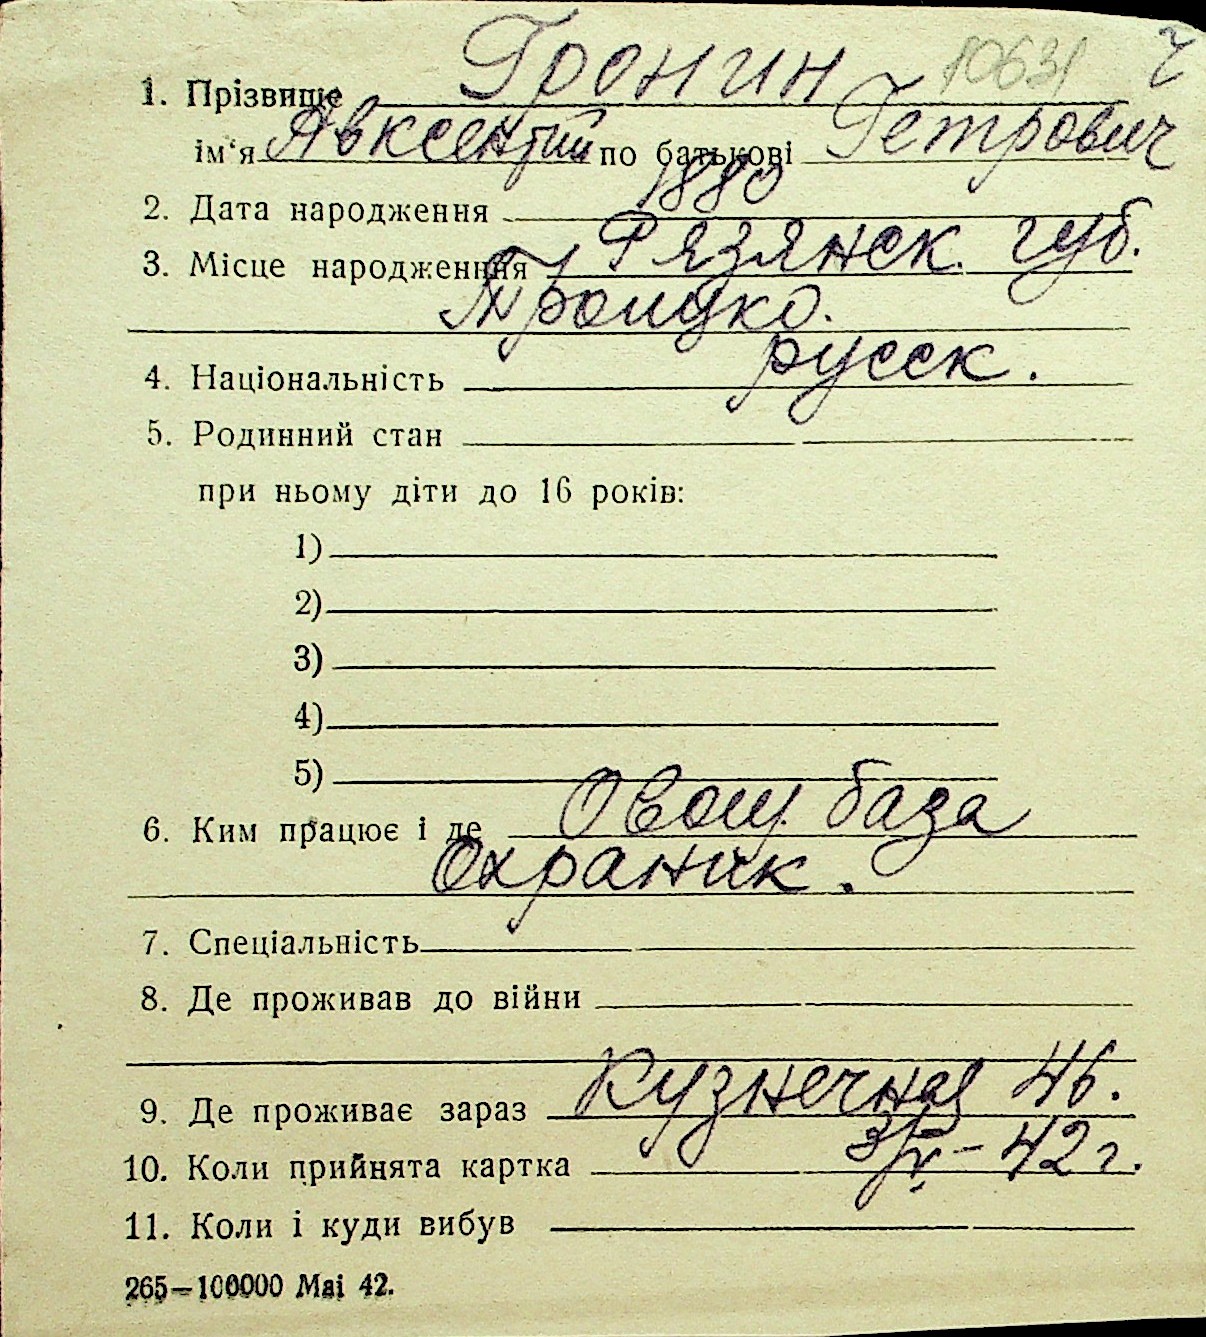 10631 ч
1. Прізвище Гронин
ім'я Авксентий по батькові Петрович
2. Дата народження 1880
3. Місце народження Рязянск. губ.
Троицко.
4. Національність русск.
5. Родинний стан
при ньому діти до 16 років:
1)
2)
3)
4)
5)
6. Ким працює і де Овощ. база
Охраник.
7. Спеціальність
8. Де проживав до війни
9. Де проживає зараз Кузнечная 46.
10. Коли прийнята картка 3/V - 42 г.
11. Коли і куди вибув
265—100000 Mai 42.